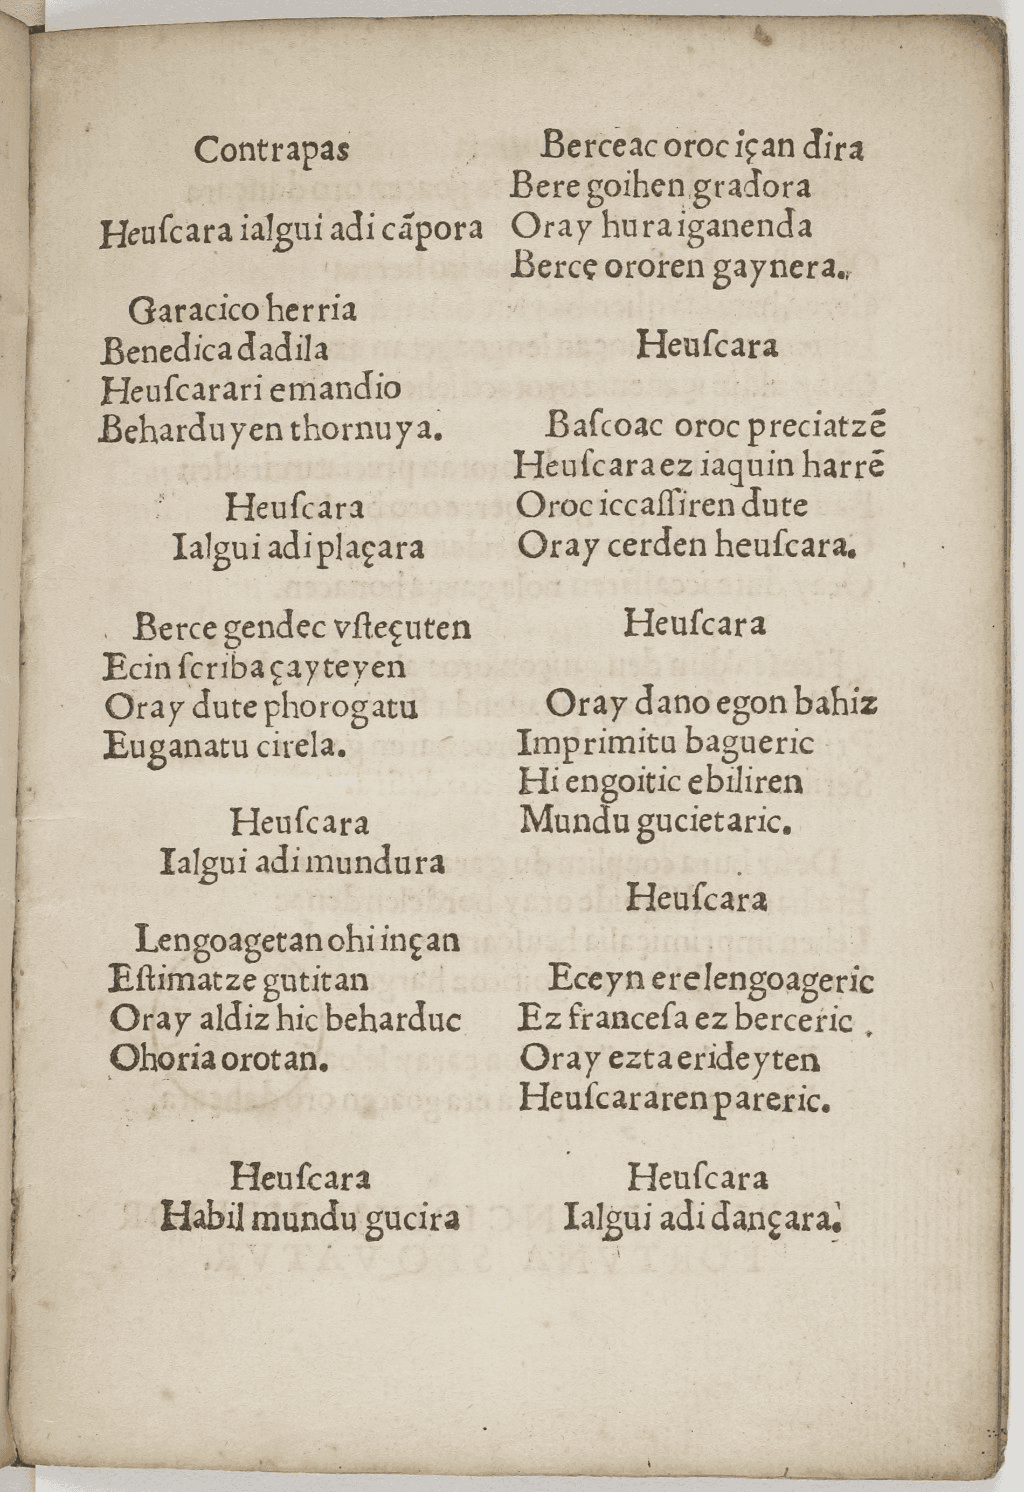 Contrapas
Heuſcara ialgui adi cãpora
Garacico herria
Benedica dadila
Heuſcarari emandio
Beharduyen thornuya.
Heuſcara
Ialgui adi plaçara
Berce gendec vſteçuten
Ecin ſcriba çayteyen
Oray dute phorogatu
Euganatu cirela.
Heuſcara
Ialgui adi mundura
Lengoagetan ohi inçan
Eſtimatze gutitan
Oray aldiz hic beharduc
Ohoria orotan.
Heuſcara
Habil mundu gucira
Berceac oroc içan dira
Bere goihen gradora
Oray hura iganenda
Berce ororen gaynera.
Heuſcara
Baſcoac oroc preciatzẽ
Heuſcara ez iaquin harrẽ
Oroc iccaſſiren dute
Oray cerden heuſcara.
Heuſcara
Oray dano egon bahiz
Imprimitu bagueric
Hi engoitic ebiliren
Mundu gucietaric.
Heuſcara
Eceyn ere lengoageric
Ez franceſa ez berceric
Oray ezta erideyten
Heuſcararen pareric.
Heuſcara
Ialgui adi dançara.